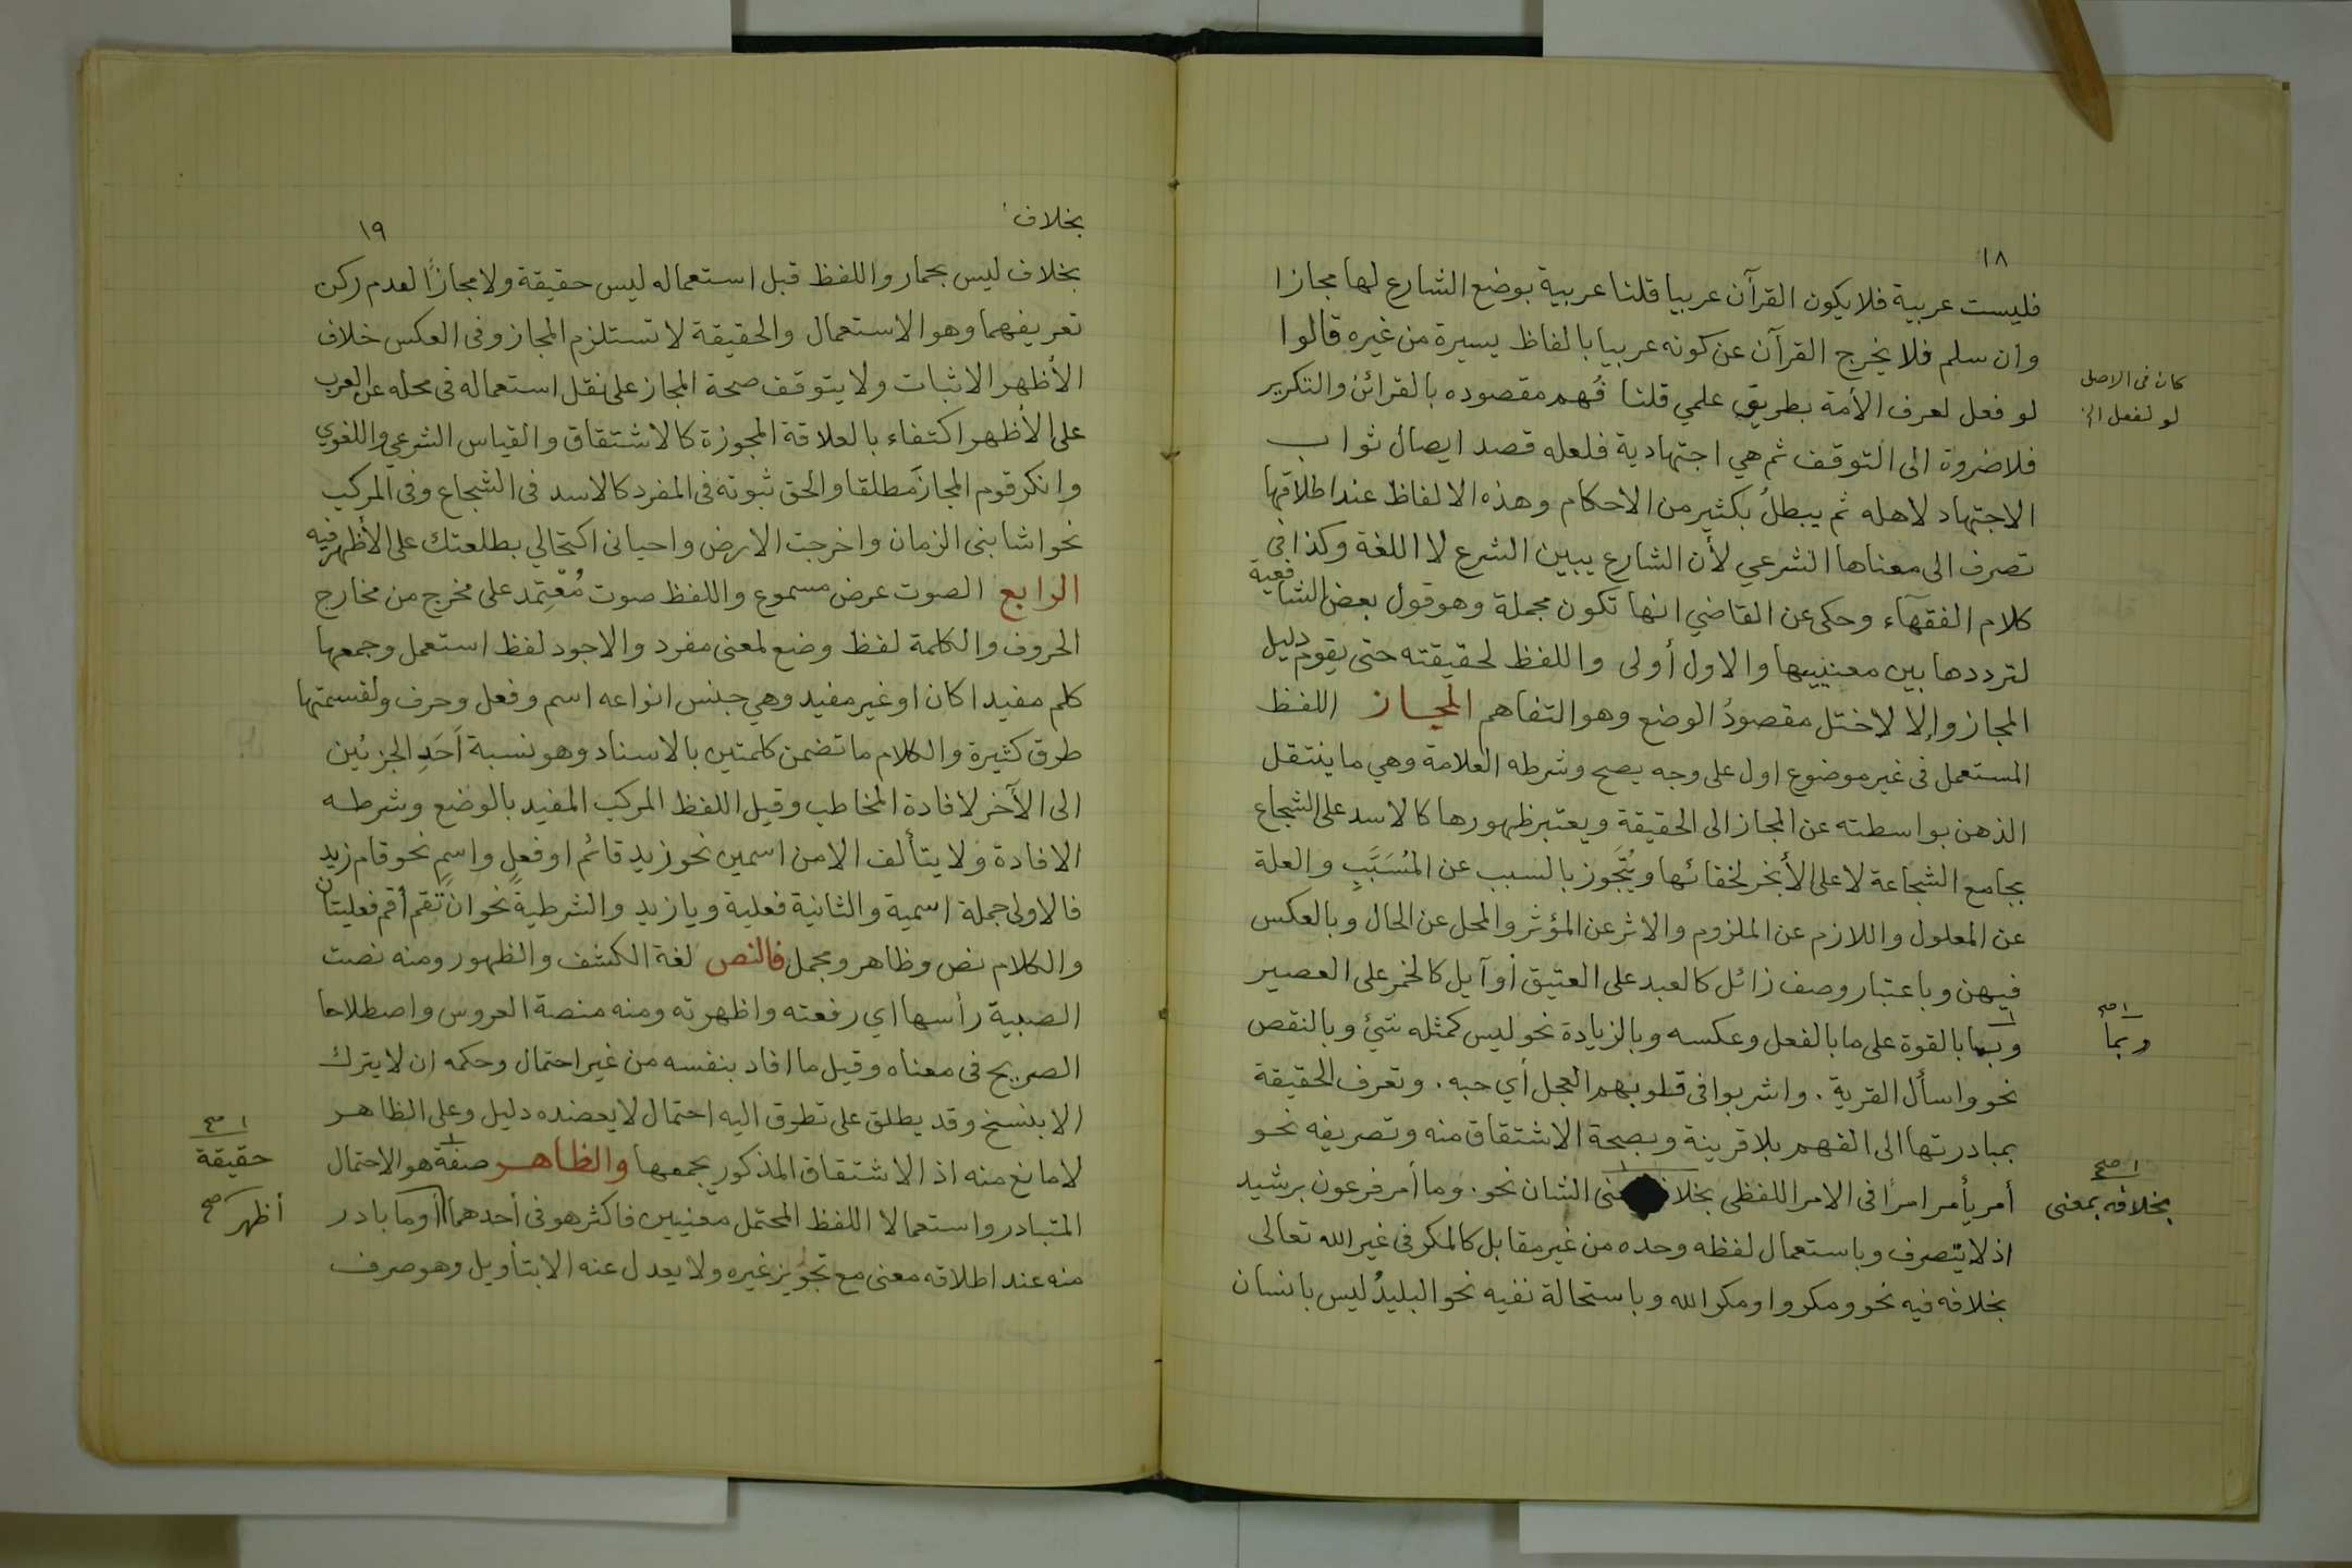 ١٨
فليست عربية فلا يكون القرآن عربيا قلنا عربية بوضع الشارع لها مجازا
وان سلم فلا يخرج القرآن عن كونه عربيا بالفاظ يسيرة من غيره قالوا
لو فعل لعرف الأمة بطريق علمي قلنا فُهم مقصوده بالقرائن والتكرير
كان فى الاصل
لو لفعل الخ
فلا ضروة الى التوقف ثم هي اجتهادية فلعله قصد ايصال ثواب
الاجتهاد لاهله ثم يبطلُ بكثير من الاحكام وهذه الالفاظ عند اطلاقها
تصرف الى معناها الشرعي لأن الشارع يبين الشرع لا اللغة وكذا في
كلام الفقهآء وحكى عن القاضي انها تكون مجملة وهو قول بعض الشافعية
لترددها بين معنييها والاول أولى واللفظ لحقيقته حتى يقوم دليل
المجاز وإلا لاختل مقصودُ الوضع وهو التفاهم المجاز اللفظ
المستعمل فى غير موضوع اول على وجه يصح وشرطه العلامة وهي ما ينتقل
الذهن بواسطته عن المجاز الى الحقيقة ويعتبر ظهورها كالاسد على الشجاع
بجامع الشجاعة لا على الأبخر لخفائها ويُتَجَوز بالسبب عن المُسَبَّبِ والعلة
عن المعلول واللازم عن الملزوم والاثر عن المؤثر والمحل عن الحال وبالعكس
فيهن وباعتبار وصف زائل كالعبد على العتيق أو آيل كالخمر على العصير
وبما بالقوة على ما بالفعل وعكسه وبالزيادة نحو ليس كمثله شئ وبالنقص
١ صح
وبما
نحو واسأل القرية . واشربوا فى قلوبهم العجل أي حبه . وتعرف الحقيقة
بمبادرتها الى الفهم بلا قرينة وبصحة الاشتقاق منه وتصريفه نحو
أمر يأمر امرًا فى الامر اللفظى بخلا عنى الشان نحو . وما أمر فرعون برشيد
١ صح
بخلافه بمعنى
اذ لا يتصرف وباستعمال لفظه وحده من غير مقابل كالمكر فى غير الله تعالى
بخلافه فيه نحو ومكروا ومكر الله وباستحالة نفيه نحو البليدُ ليس بانسان
بخلاف
١٩
بخلاف ليس بحمار واللفظ قبل استعماله ليس حقيقة ولا مجازًا لعدم ركن
تعريفهما وهو الاستعمال والحقيقة لا تستلزم المجاز وفى العكس خلاف
الأظهر الاثبات ولا يتوقف صحة المجاز على نقل استعماله فى محله عن العرب
على الأظهر اكتفاء بالعلاقة المجوزة كالاشتقاق والقياس الشرعي واللغوي
وانكر قوم المجاز مطلقا والحق ثبوته فى المفرد كالاسد فى الشجاع وفى المركب
نحو اشابنى الزمان واخرجت الارض واحيانى اكتحالي بطلعتك على الأظهر فيه
الرابع الصوت عرض مسموع واللفظ صوت مُعْتِمد على مخرج من مخارج
الحروف والكلمة لفظ وضع لمعنى مفرد والاجود لفظ استعمل وجمعها
كلم مفيدا كان او غير مفيد وهي جنس انواعه اسم وفعل وحرف ولقسمتها
طرق كثيرة والكلام ما تضمن كلمتين بالاسناد وهو نسبة اَحَدِ الجزئين
الى الآخر لافادة المخاطب وقيل اللفظ المركب المفيد بالوضع وشرطه
الافادة ولا يتألف الا من اسمين نحو زيد قائم او فعلٍ واسمٍ نحو قام زيد
فالاولى جملة اسمية والثانية فعلية ويا زيد والشرطية نحو ان تقم أقم فعليتان
والكلام نص وظاهر ومجمل فالنص لغة الكشف والظهور ومنه نصت
الصبية رأسها اي رفعته واظهرته ومنه منصة العروس واصطلاحا
الصريح فى معناه وقيل ما افاد بنفسه من غير احتمال وحكمه ان لا يترك
الا بنسخ وقد يطلق على تطرق اليه احتمال لا يعضده دليل وعلى الظاهر
لا مانع منه اذ الاشتقاق المذكور يجمعها والظاهر صفة هو الاحتمال
١ صح
حقيقة
المتبادر واستعمالا اللفظ المحتمل معنيين فاكثر هو فى أحدهما أو ما بادر
أظهر صح
منه عند اطلاقه معنى مع تجويز غيره ولا يعدل عنه الا بتأويل وهو صرف